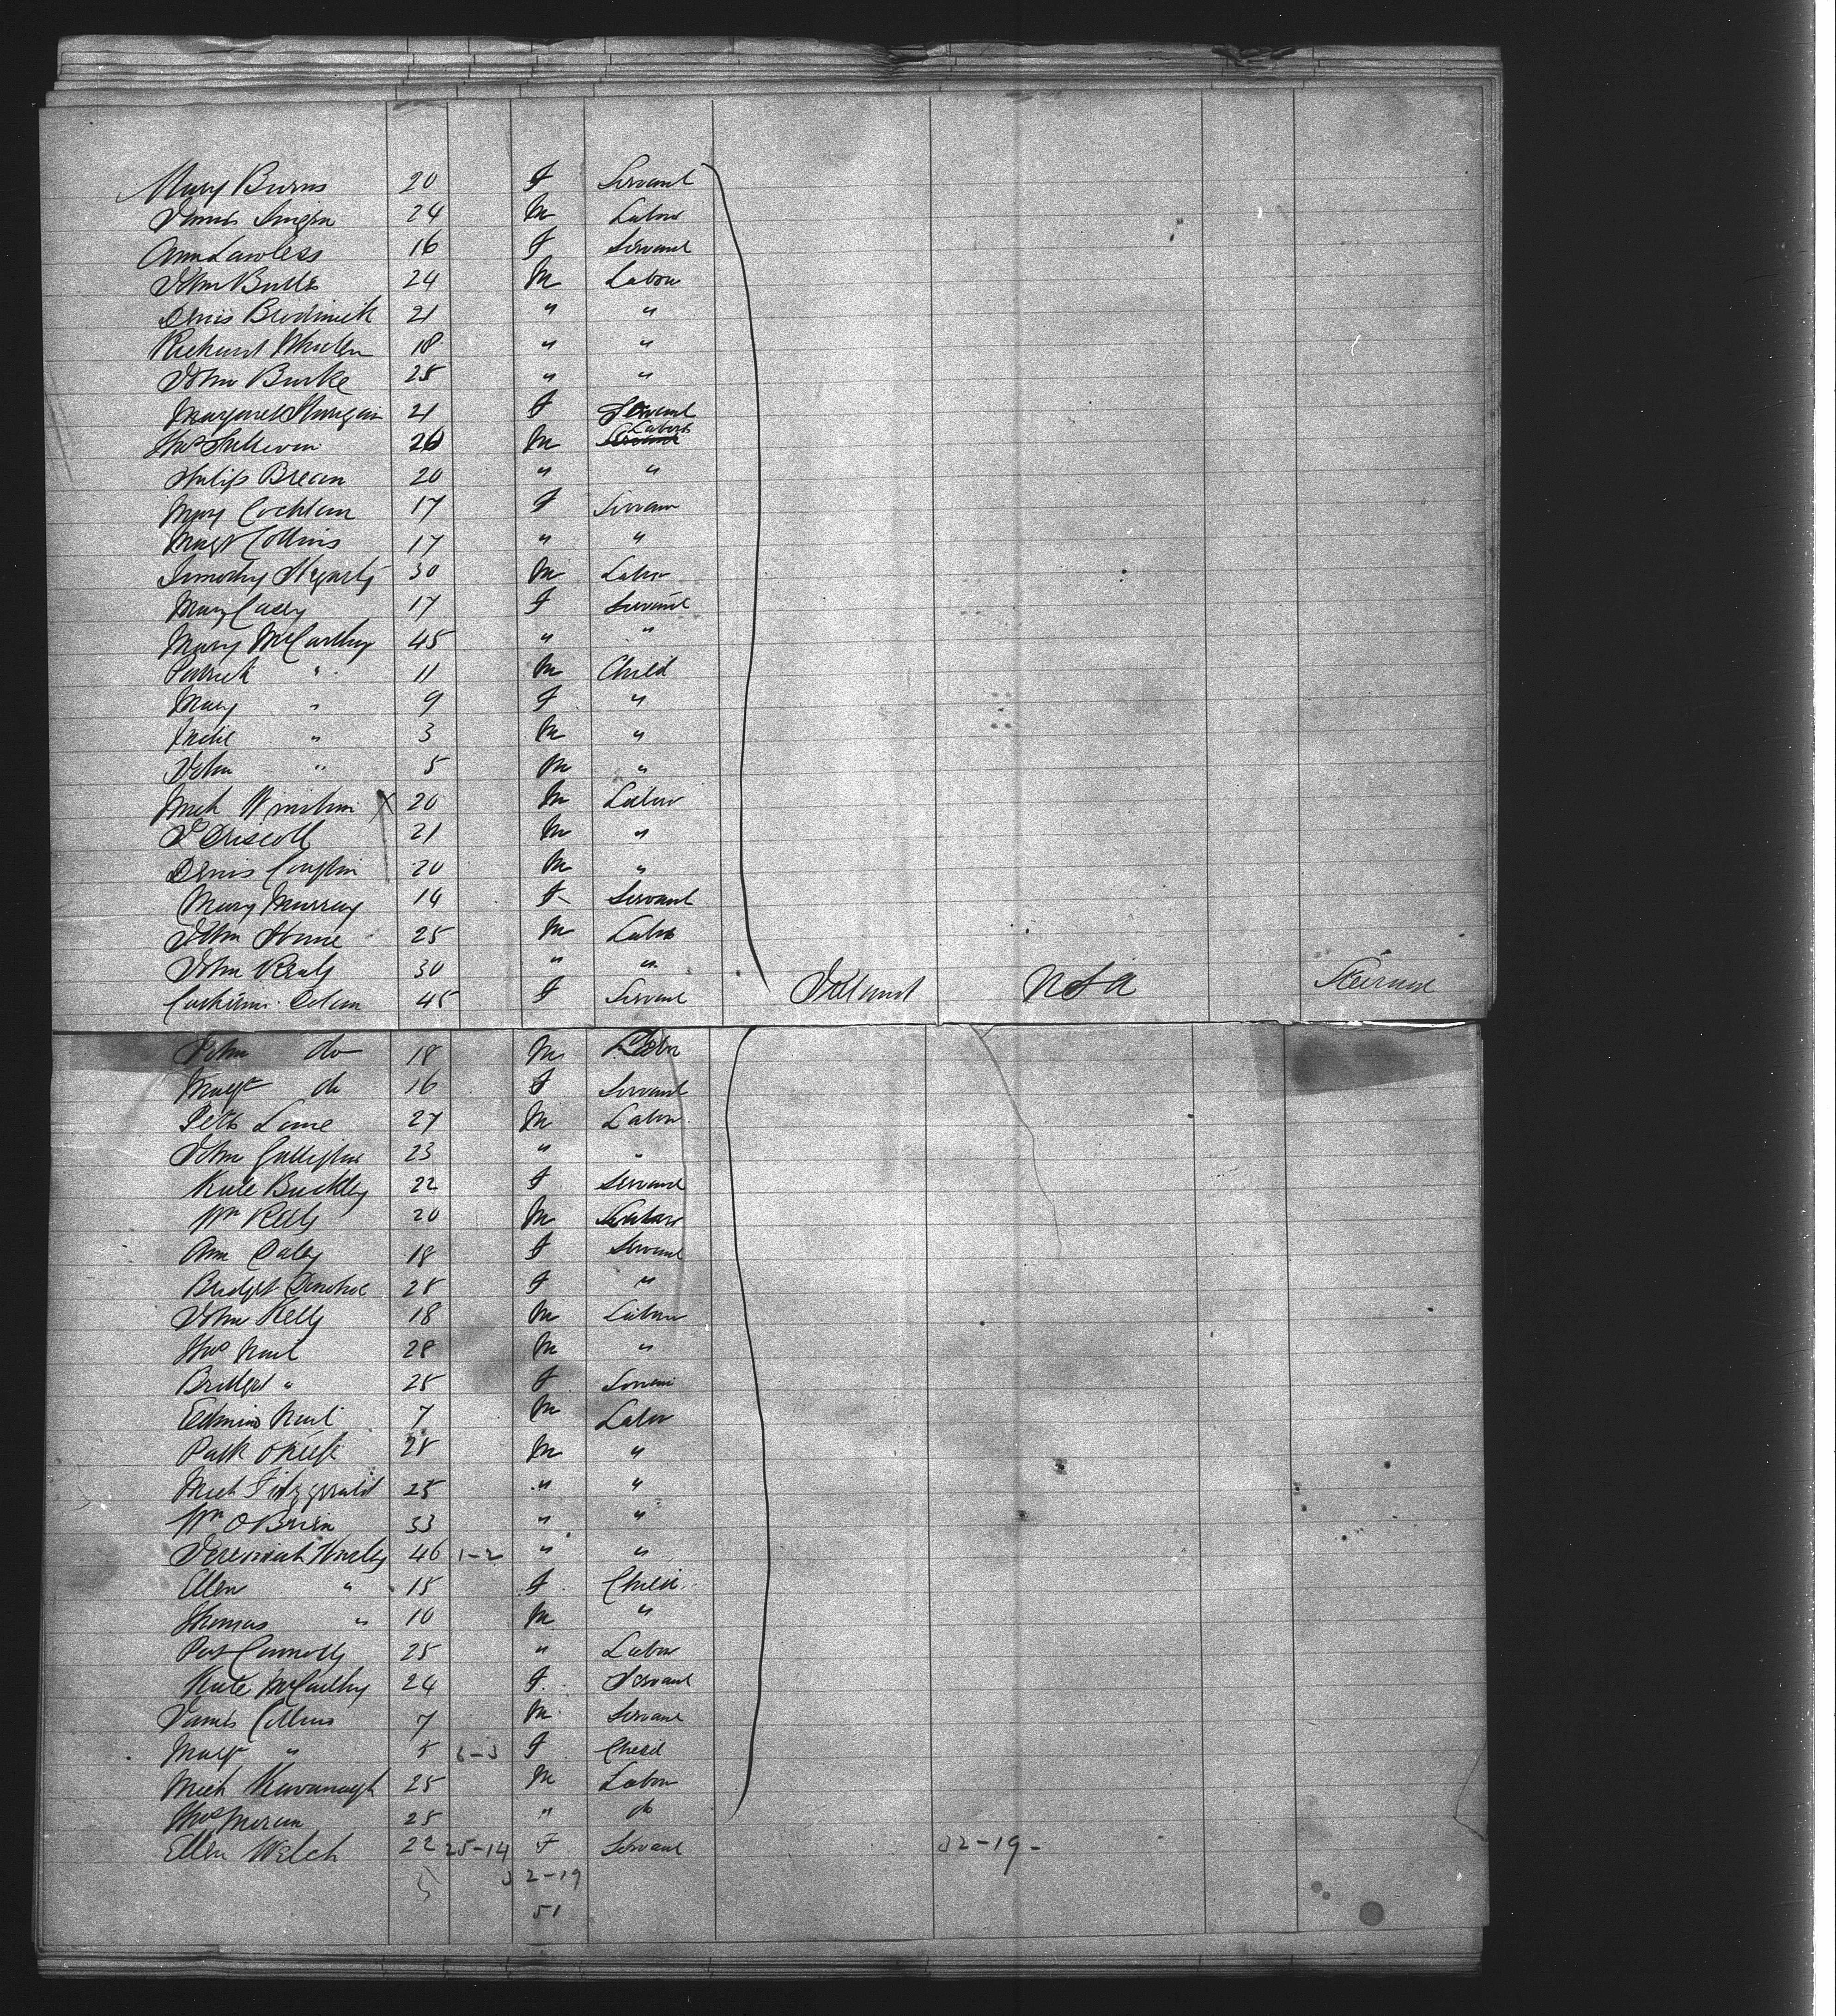 Mary Burns 20 F Servant
James 24 M Labor
Ann Lawless 16 F Servant
John Butler 24 M Labour
Denis Brodrick 21 " "
Richard Whelen 18 " "
John Burke 25 " "
Margaret 21 F Servant
Thos Sullivan 26 M Labor
Philip Breen 20 " "
Mary Cochlan 17 F Servan
Margt Collins 17 " "
Timothy Hegarty 30 M Labor
Mary Casey 17 F Servant
Mary McCarthy 45 " "
Patrick " 11 M Child
Mary " 9 F "
" 3 M "
John " 5 M "
Mich X 20 M Labor
Driscoll 21 M "
Denis 20 M "
Mary Murray 14 F Servant
John 25 M Labor
John 30 " "
45 F Servant Ireland USA Steerage
John do 18 M Labor
Margt do 16 F Servant
Peter Lane 27 M Labor
John 23 " "
Kate Buckley 22 F Servant
Wm Kelly 20 M Labor
Ann Daley 18 F Servant
Bridget Donohoe 25 F "
John Kelly 18 M Labour
Thos 28 M "
Bridget " 25 F
7 M Labor
Patk OKeefe 25 M "
Mich Fitzgerald 25 " "
Wm OBrien 33 " "
Jeremiah Hurley 46 1-2 " "
Ellen " 15 F Child
Thomas " 10 M "
Pat Connolly 25 " Labor
Kate McCarthy 24 F Servant
James Collins 7 M Servant
Margt " 5 6-3 F Child
Mich Kavanagh 25 M Labor
Thos Moran 25 " do
Ellen Welch 22 25-14 F Servant 32-19-
32-19
51